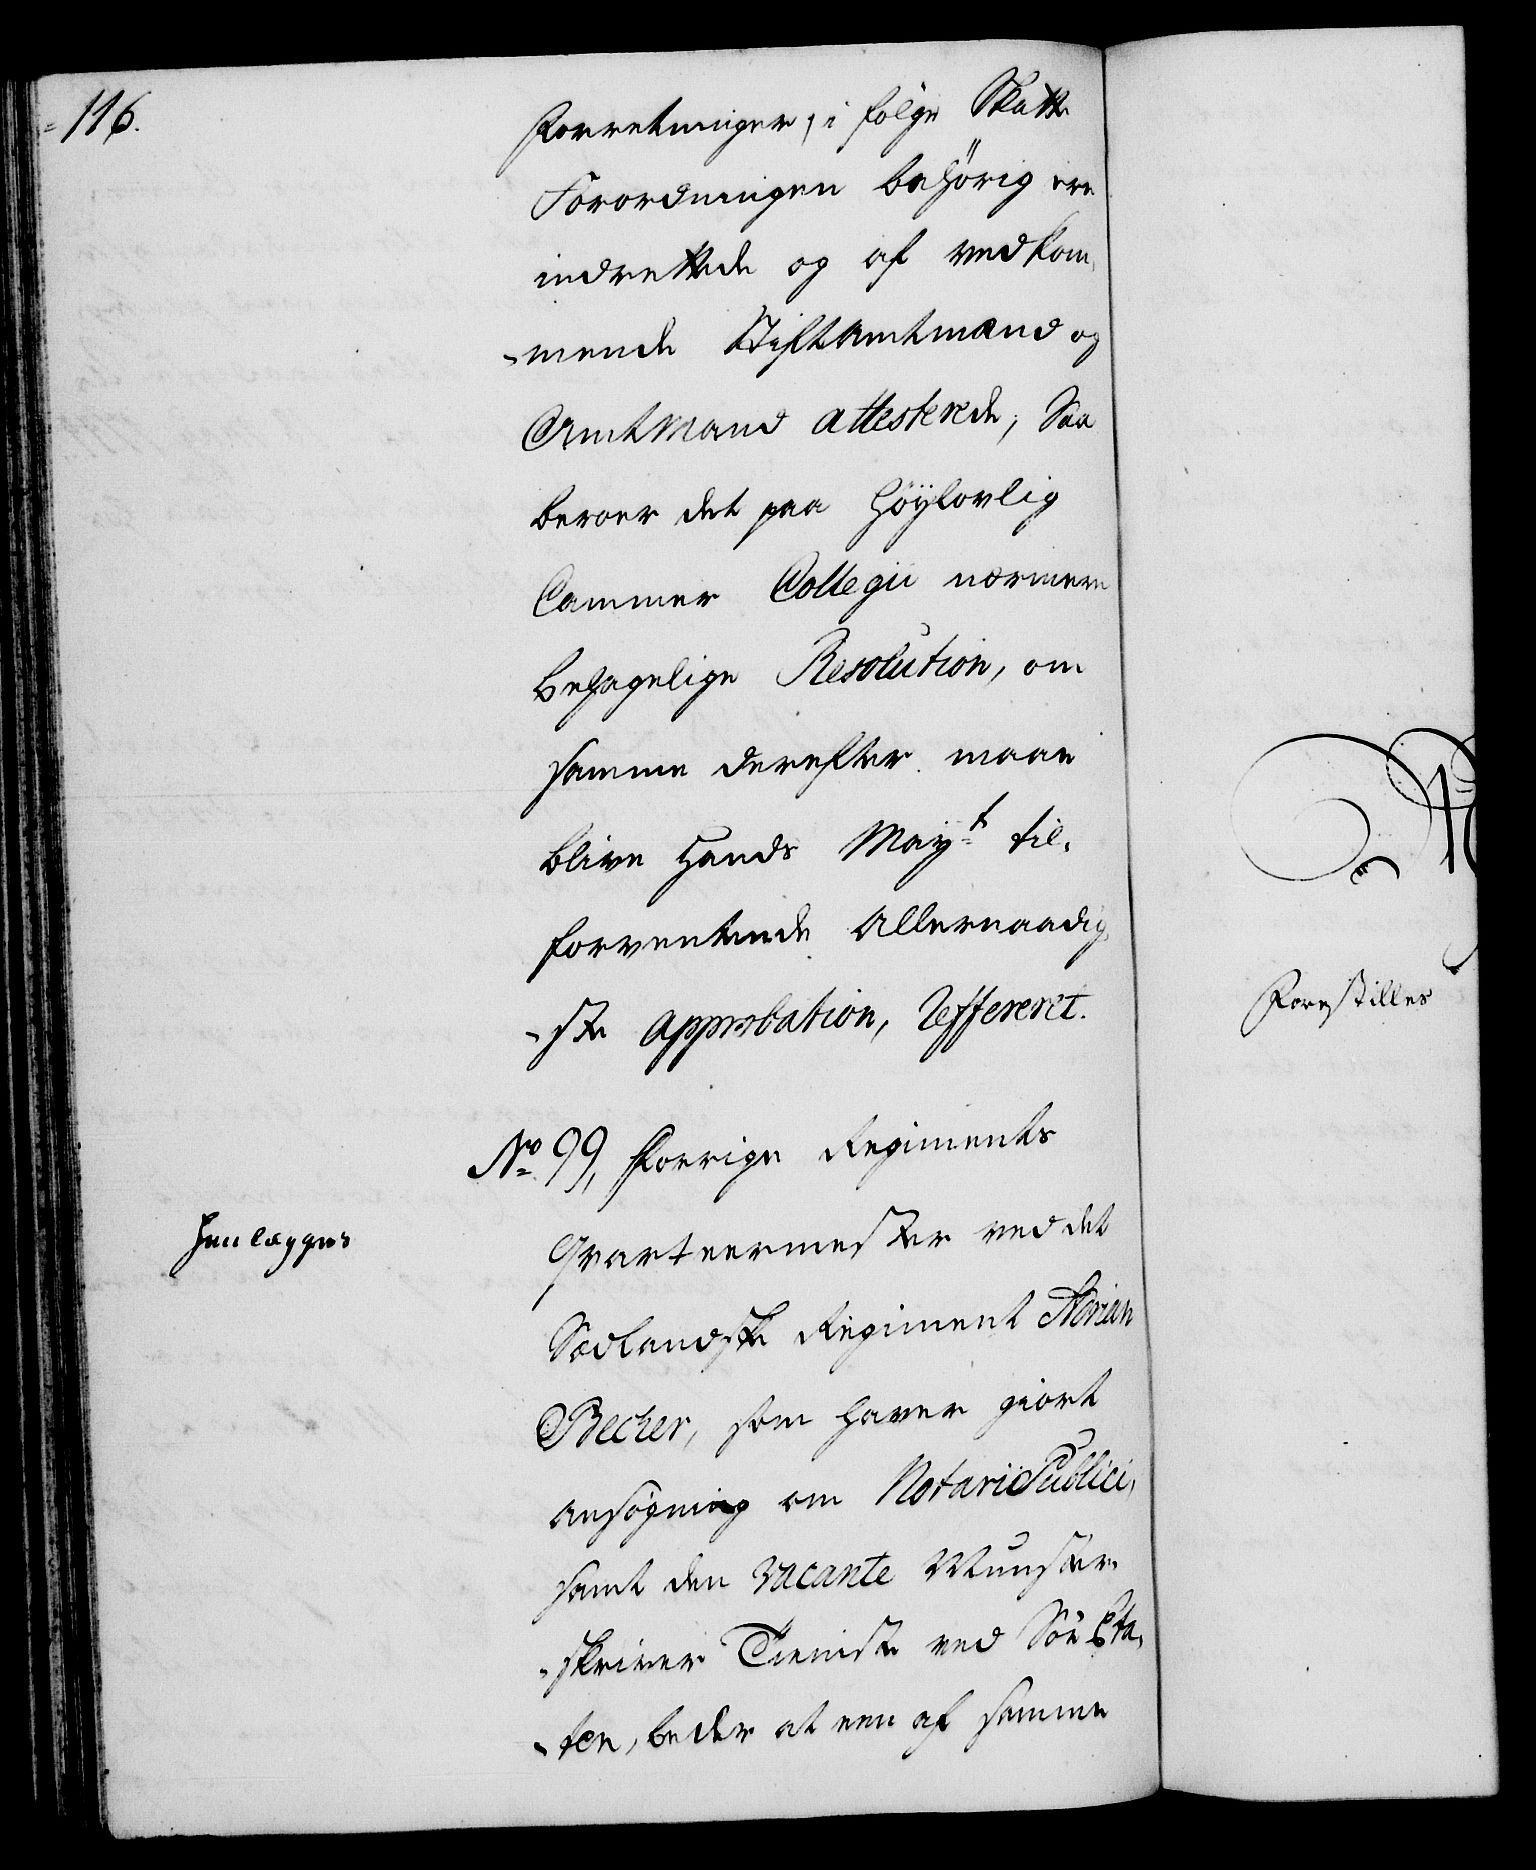 116.
Forretninger, i følge Skatte
Forordningen behörig ere
indrettede og af vedkom,
-mende Stiftamtmænd og
Amtmænd attesterede; Saa
beroer det paa Höylovlig
Cammer Collegii nærmere
behagelige Resolution, om
samme derefter maae
blive Hands Mayt til
forventende Allernaadig,
-ste approbation, refereret.
No 99, Forrige Regiments
Henlægges
Qvarteermester ved det
Sædlandske Regiment Adrian
Becher, som haver giort
ansøgning om Notarii Publici,
samt den vacante Munster-
-skriver Tieniste ved Söe Eta,
-ten, beder at een af samme
Forestilles